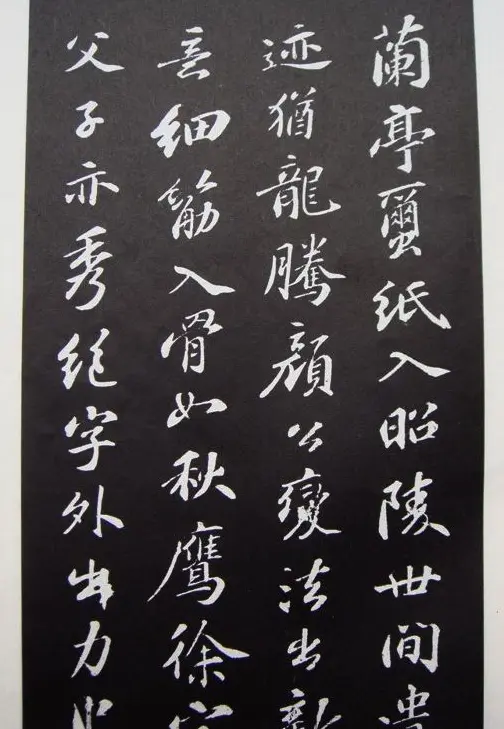 蘭亭蠒紙入昭陵世間遺
迹猶龍騰顏公變法出新
意細筋入骨如秋鷹徐
父子亦秀絕字外出力